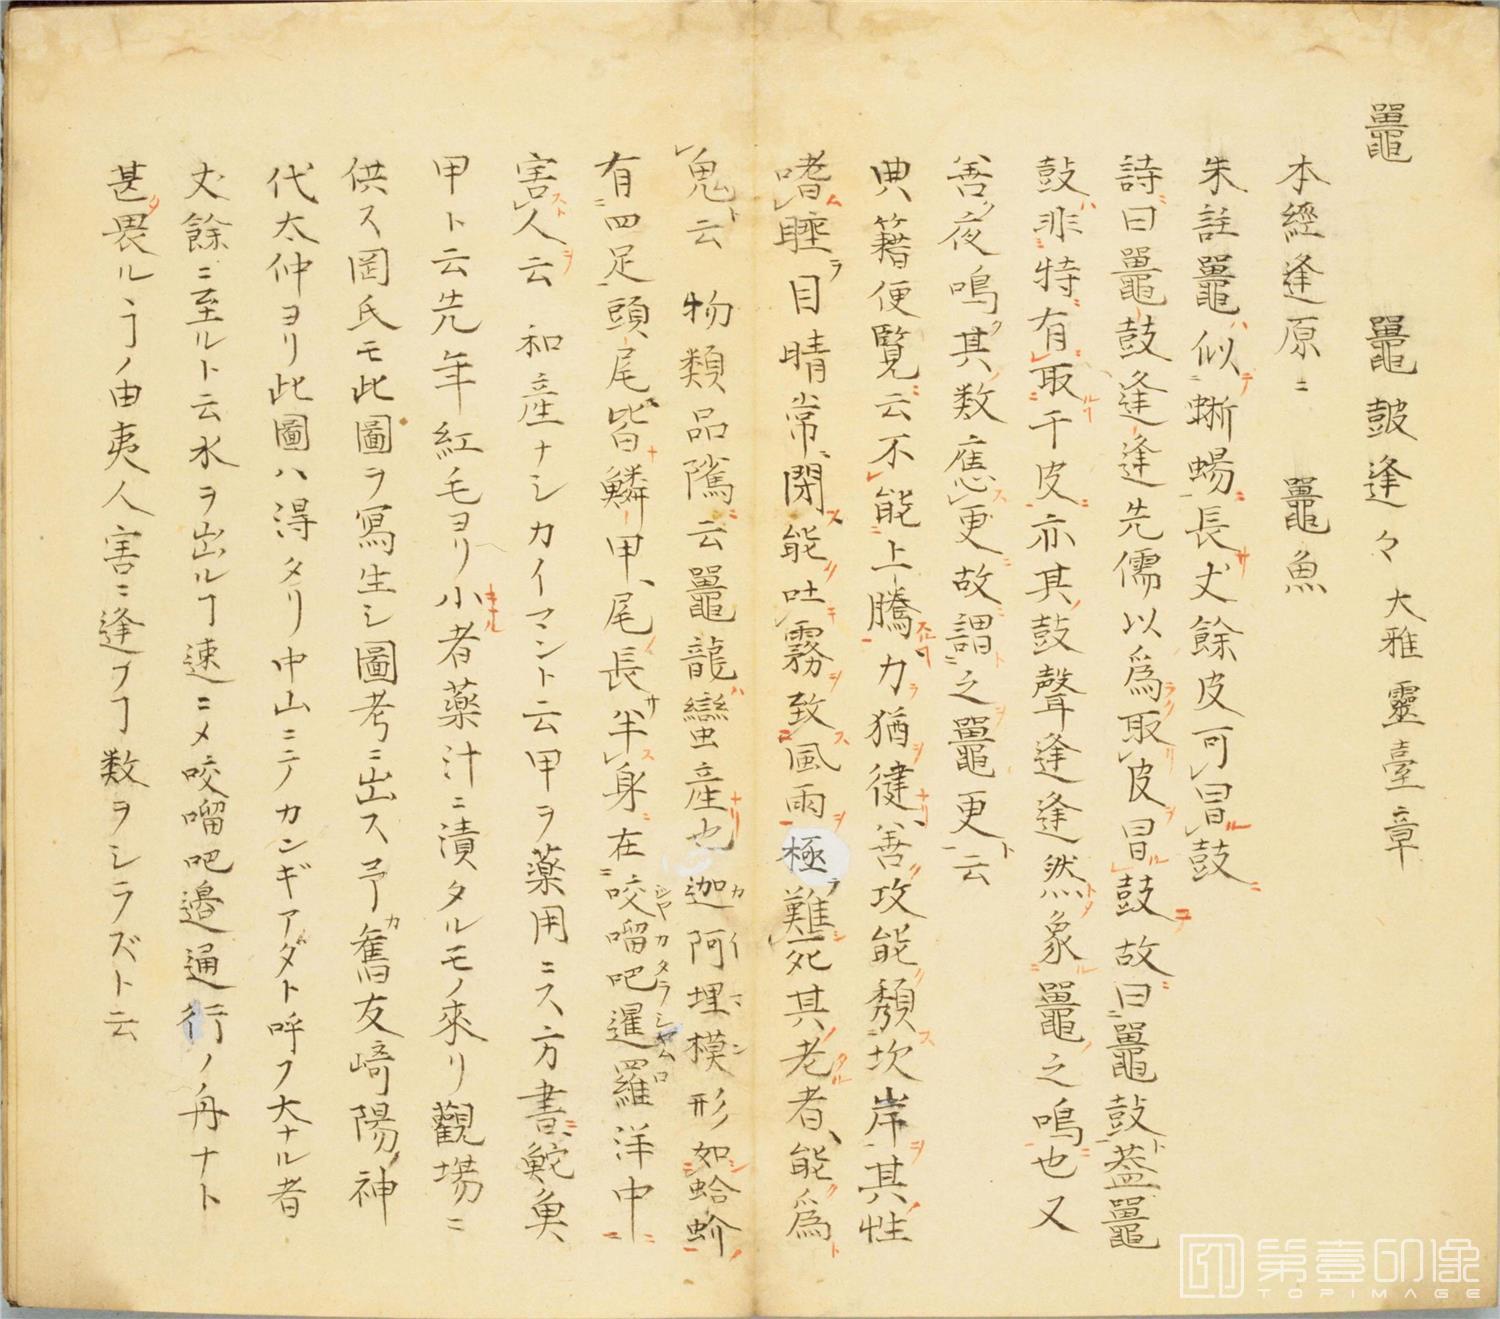 鼉　　鼉鼓逢々大雅靈臺章
本經逢原ニ　鼉魚
朱註鼉似蜥蜴長丈餘皮可冒鼓
詩曰鼉鼓逢逢先儒以爲取皮冒鼓故曰鼉鼓蓋鼉
鼓非特有取千皮亦其鼓聲逢逢然象鼉之鳴也又
善夜鳴其数應更故謂之鼉更云
典籍便覧云不能上騰力猶健善攻能頽坎岸其性
嗜睡目晴常閉能吐霧致風雨極難死其老者能爲
鬼云　物類品隲云鼉龍蠻産也迦阿埋模形如蛤蚧
有四足頭尾皆鱗甲尾長半身在咬𠺕吧暹羅洋中
害人云　和産ナシカイマント云甲ヲ薬用ニス方書鮀魚
甲ト云先年紅毛ヨリ小者薬汁ニ漬タルモノ來リ觀場ニ
供ス岡氏モ此圖ヲ寫生シ圖考ニ出ス予カ舊友﨑陽神
代太仲ヨリ此圖ハ得タリ中山ニテカンギアダト呼フ大ナル者
丈餘ニ至ルト云水ヲ出ルヿ速ニメ咬𠺕吧邉通行ノ舟ナト
甚畏ルヿノ由夷人害ニ逢フヿ数ヲシラズト云
第壹印像
TOPIMAGE